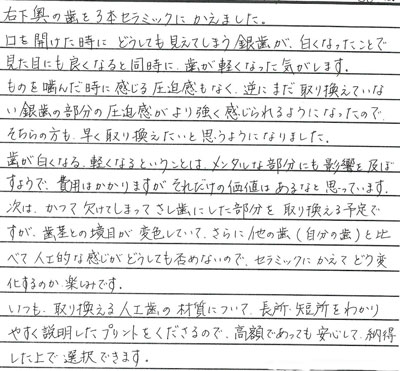 右下奥の歯を3本セラミックにかえました。
口を開けた時に どうしても見えてしまう銀歯が、白くなったことで
見た目にも良くなると同時に、歯が軽くなった気がします。
ものを噛んだ時に感じる圧迫感もなく、逆にまだ取り換えていな
い銀歯の部分の圧迫感がより強く感じられるようになったので、
そちらの方も、早く取り換えたいと思うようになりました。
歯が白くなる、軽くなるということは、メンタルな部分にも影響を及ぼ
すようで、費用はかかりますがそれだけの価値はあるなと思っています。
次は、かつて欠けてしまってさし歯にした部分を 取り換える予定で
すが、歯茎との境目が変色していて、さらに他の歯(自分の歯)と比
べて人工的な感じがどうしても否めないので、セラミックにかえてどう変
化するのか楽しみです。
いつも、取り換える人工歯の材質について、長所・短所をわかり
やすく説明したプリントをくださるので、高額であっても安心して、納得
した上で選択できます。